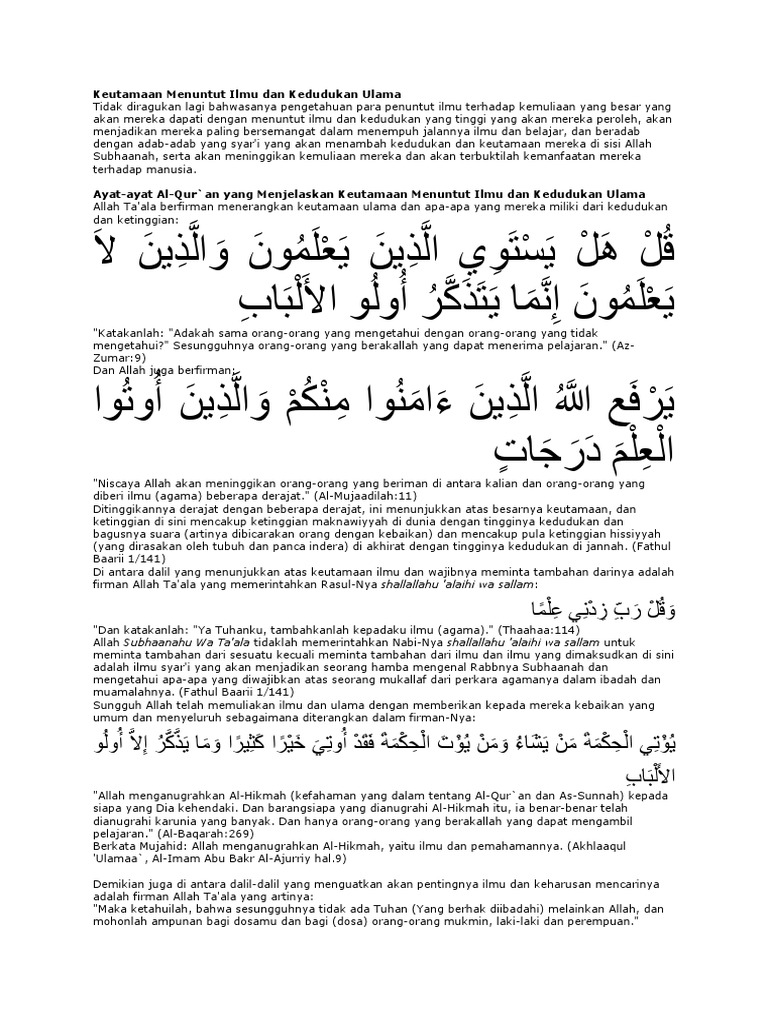 Keutamaan Menuntut Ilmu dan Kedudukan Ulama
Tidak diragukan lagi bahwasanya pengetahuan para penuntut ilmu terhadap kemuliaan yang besar yang
akan mereka dapati dengan menuntut ilmu dan kedudukan yang tinggi yang akan mereka peroleh, akan
menjadikan mereka paling bersemangat dalam menempuh jalannya ilmu dan belajar, dan beradab
dengan adab-adab yang syar'i yang akan menambah kedudukan dan keutamaan mereka di sisi Allah
Subhaanah, serta akan meninggikan kemuliaan mereka dan akan terbuktilah kemanfaatan mereka
terhadap manusia.
Ayat-ayat Al-Qur`an yang Menjelaskan Keutamaan Menuntut Ilmu dan Kedudukan Ulama
Allah Ta'ala berfirman menerangkan keutamaan ulama dan apa-apa yang mereka miliki dari kedudukan
dan ketinggian:
قُلْ هَلْ يَسْتَوِي الَّذِينَ يَعْلَمُونَ وَالَّذِينَ لاَ
يَعْلَمُونَ إِنَّمَا يَتَذَكَّرُ أُولُو الأَلْبَابِ
"Katakanlah: "Adakah sama orang-orang yang mengetahui dengan orang-orang yang tidak
mengetahui?" Sesungguhnya orang-orang yang berakallah yang dapat menerima pelajaran." (Az-
Zumar:9)
Dan Allah juga berfirman:
يَرْفَعِ اللَّهُ الَّذِينَ ءَامَنُوا مِنْكُمْ وَالَّذِينَ أُوتُوا
الْعِلْمَ دَرَجَاتٍ
"Niscaya Allah akan meninggikan orang-orang yang beriman di antara kalian dan orang-orang yang
diberi ilmu (agama) beberapa derajat." (Al-Mujaadilah:11)
Ditinggikannya derajat dengan beberapa derajat, ini menunjukkan atas besarnya keutamaan, dan
ketinggian di sini mencakup ketinggian maknawiyyah di dunia dengan tingginya kedudukan dan
bagusnya suara (artinya dibicarakan orang dengan kebaikan) dan mencakup pula ketinggian hissiyyah
(yang dirasakan oleh tubuh dan panca indera) di akhirat dengan tingginya kedudukan di jannah. (Fathul
Baarii 1/141)
Di antara dalil yang menunjukkan atas keutamaan ilmu dan wajibnya meminta tambahan darinya adalah
firman Allah Ta'ala yang memerintahkan Rasul-Nya shallallahu 'alaihi wa sallam:
وَقُلْ رَبِّ زِدْنِي عِلْمًا
"Dan katakanlah: "Ya Tuhanku, tambahkanlah kepadaku ilmu (agama)." (Thaahaa:114)
Allah Subhaanahu Wa Ta'ala tidaklah memerintahkan Nabi-Nya shallallahu 'alaihi wa sallam untuk
meminta tambahan dari sesuatu kecuali meminta tambahan dari ilmu dan ilmu yang dimaksudkan di sini
adalah ilmu syar'i yang akan menjadikan seorang hamba mengenal Rabbnya Subhaanah dan
mengetahui apa-apa yang diwajibkan atas seorang mukallaf dari perkara agamanya dalam ibadah dan
muamalahnya. (Fathul Baarii 1/141)
Sungguh Allah telah memuliakan ilmu dan ulama dengan memberikan kepada mereka kebaikan yang
umum dan menyeluruh sebagaimana diterangkan dalam firman-Nya:
يُؤْتِي الْحِكْمَةَ مَنْ يَشَاءُ وَمَنْ يُؤْتَ الْحِكْمَةَ فَقَدْ أُوتِيَ خَيْرًا كَثِيْرًا وَمَا يَذَّكَّرُ إِلاَّ أُولُو
الأَلْبَابِ
"Allah menganugrahkan Al-Hikmah (kefahaman yang dalam tentang Al-Qur`an dan As-Sunnah) kepada
siapa yang Dia kehendaki. Dan barangsiapa yang dianugrahi Al-Hikmah itu, ia benar-benar telah
dianugrahi karunia yang banyak. Dan hanya orang-orang yang berakallah yang dapat mengambil
pelajaran." (Al-Baqarah:269)
Berkata Mujahid: Allah menganugrahkan Al-Hikmah, yaitu ilmu dan pemahamannya. (Akhlaaqul
'Ulamaa`, Al-Imam Abu Bakr Al-Ajurriy hal.9)
Demikian juga di antara dalil-dalil yang menguatkan akan pentingnya ilmu dan keharusan mencarinya
adalah firman Allah Ta'ala yang artinya:
"Maka ketahuilah, bahwa sesungguhnya tidak ada Tuhan (Yang berhak diibadahi) melainkan Allah, dan
mohonlah ampunan bagi dosamu dan bagi (dosa) orang-orang mukmin, laki-laki dan perempuan."